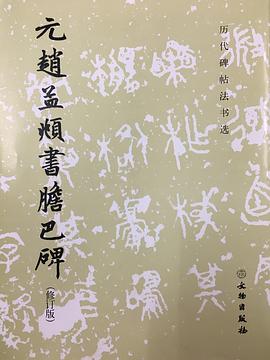 历代碑帖法书选
元趙孟頫書膽巴碑
(修订版)
文物出版社